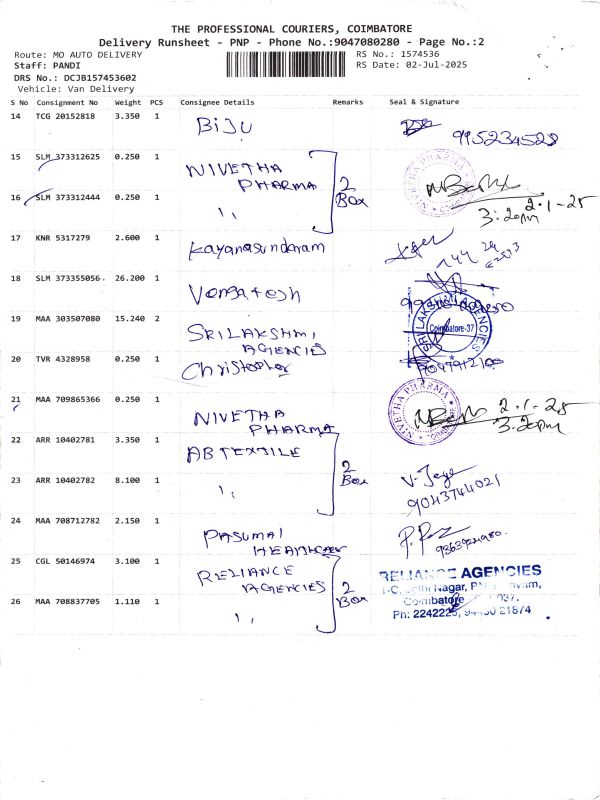 THE PROFESSIONAL COURIERS, COIMBATORE
Delivery Runsheet - PNP - Phone No.:9047080280 - Page No.:2
Route: MO AUTO DELIVERY RS No.: 1574536
Staff: PANDI RS Date: 02-Jul-2025
DRS No.: DCJB157453602
Vehicle: Van Delivery
S No Consignment No Weight PCS Consignee Details Remarks Seal & Signature
14 TCG 20152818 3.350 1 BIJU 9952234528
15 SLM 373312625 0.250 1 NIVETHA PHARMA 2 Box NIVETHA PHARMA
16 SLM 373312444 0.250 1 ,, 2-1-25
3:20pm
17 KNR 5317279 2.600 1 Kayanasundaram
18 SLM 373355056 26.200 1 Vengatesh
19 MAA 303507080 15.240 2 SRILAKSHMI AGENCIES SRI LAKSHMI AGENCIES Coimbatore-37
20 TVR 4328958 0.250 1 Christopher
21 MAA 709865366 0.250 1 NIVETHA PHARMA NIVETHA PHARMA 2-1-25
3.20pm
22 ARR 10402781 3.350 1 AB TEXTILE 2 Box
23 ARR 10402782 8.100 1 ,, 9043744021
24 MAA 708712782 2.150 1 PASUMAI HEALTHCARE
25 CGL 50146974 3.100 1 RELIANCE AGENCIES 2 Box RELIANCE AGENCIES
Nagar,
26 MAA 708837705 1.110 1 ,, Coimbatore 037.
Ph: 2242225, 21874